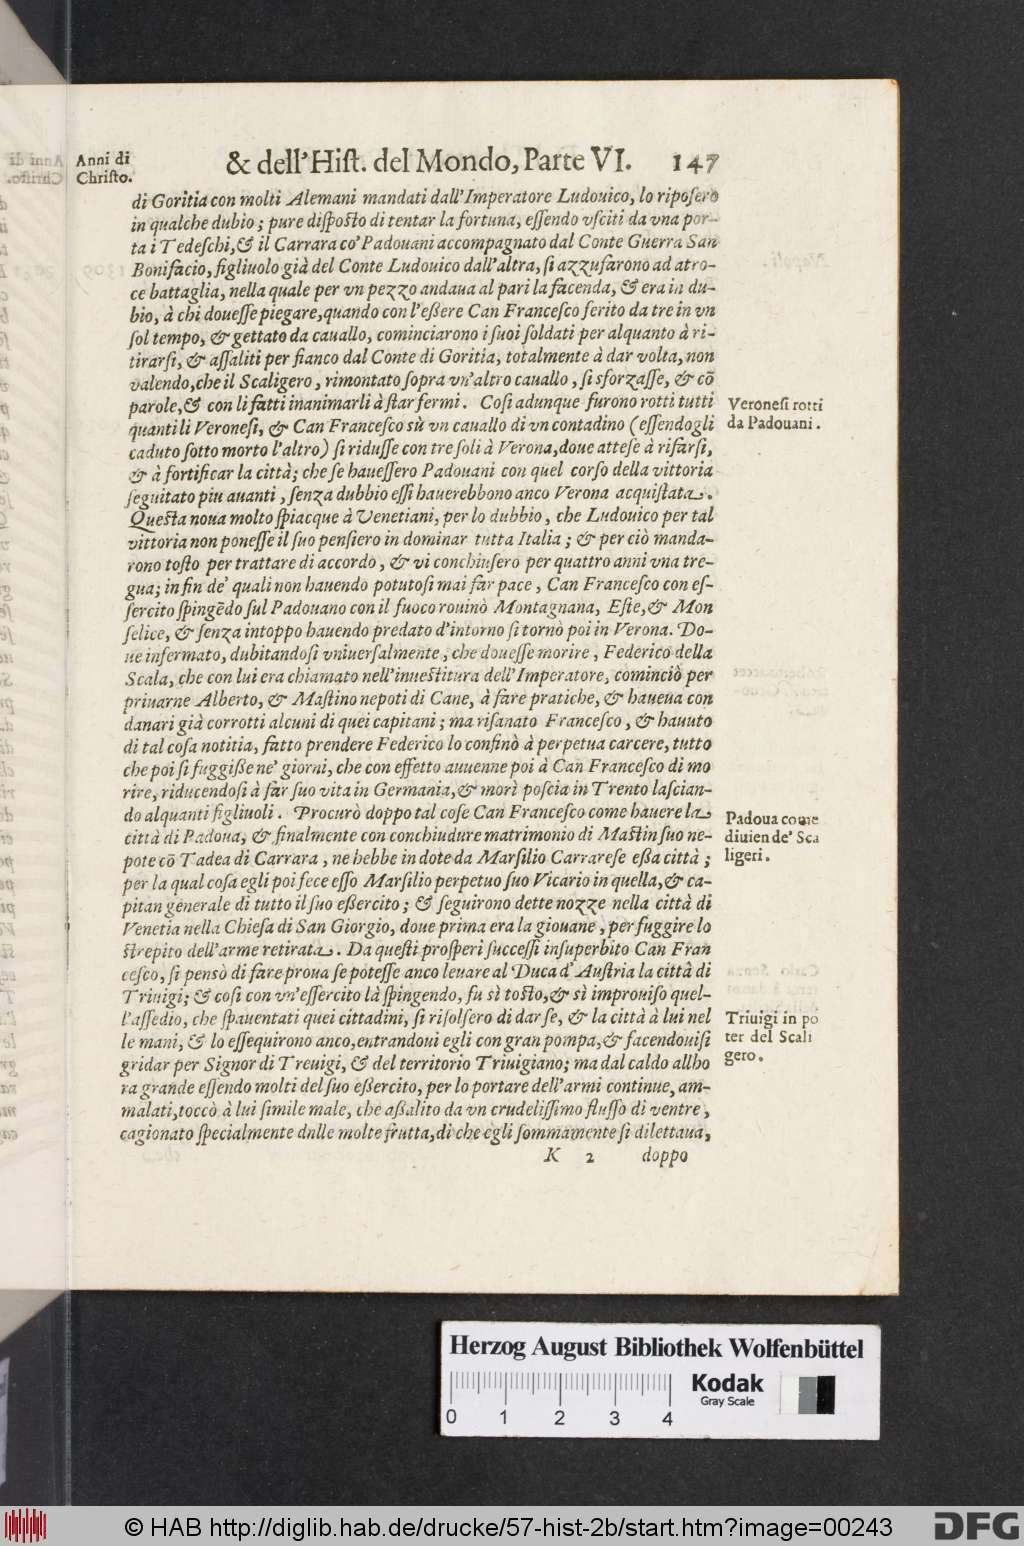 Anni di
Christo.
& dell'Hist. del Mondo, Parte VI. 147
di Goritia con molti Alemani mandati dall'Imperatore Ludouico, lo riposero
in qualche dubio; pure disposto di tentar la fortuna, essendo vsciti da vna por-
ta i Tedeschi, & il Carrara co' Padouani accompagnato dal Conte Guerra San
Bonifacio, figliuolo già del Conte Ludouico dall'altra, si azzufarono ad atro-
ce battaglia, nella quale per vn pezzo andaua al pari la facenda, & era in du-
bio, à chi douesse piegare, quando con l'eßere Can Francesco ferito da tre in vn
sol tempo, & gettato da cauallo, cominciarono i suoi soldati per alquanto à ri-
tirarsi, & assaliti per fianco dal Conte di Goritia, totalmente à dar volta, non
valendo, che il Scaligero, rimontato sopra vn'altro cauallo, si sforzasse, & cō
parole, & con li fatti inanimarli à star fermi. Cosi adunque furono rotti tutti
quanti li Veronesi, & Can Francesco sù vn cauallo di vn contadino (essendogli
caduto sotto morto l'altro) si ridusse con tre soli à Verona, doue attese à rifarsi,
& à fortificar la città; che se hauessero Padouani con quel corso della vittoria
seguitato piu auanti, senza dubbio essi hauerebbono anco Verona acquistata.
Questa noua molto spiacque à Venetiani, per lo dubbio, che Ludouico per tal
vittoria non ponesse il suo pensiero in dominar tutta Italia; & per ciò manda-
rono tosto per trattare di accordo, & vi conchiusero per quattro anni vna tre-
gua; in fin de' quali non hauendo potutosi mai far pace, Can Francesco con es-
sercito spingēdo sul Padouano con il fuoco rouinò Montagnana, Este, & Mon
selice, & senza intoppo hauendo predato d'intorno si tornò poi in Verona. Do-
ue infermato, dubitandosi vniuersalmente, che douesse morire, Federico della
Scala, che con lui era chiamato nell'inuestitura dell'Imperatore, cominciò per
priuarne Alberto, & Mastino nepoti di Cane, à fare pratiche, & haueua con
danari già corrotti alcuni di quei capitani; ma risanato Francesco, & hauuto
di tal cosa notitia, fatto prendere Federico lo confinò à perpetua carcere, tutto
che poi si fuggiße ne' giorni, che con effetto auuenne poi à Can Francesco di mo
rire, riducendosi à far suo vita in Germania, & morì poscia in Trento lascian-
do alquanti figliuoli. Procurò doppo tal cose Can Francesco come hauere la
città di Padoua, & finalmente con conchiudure matrimonio di Mastin suo ne-
pote cō Tadea di Carrara, ne hebbe in dote da Marsilio Carrarese eßa città;
per la qual cosa egli poi fece esso Marsilio perpetuo suo Vicario in quella, & ca-
pitan generale di tutto il suo eßercito; & seguirono dette nozze nella città di
Venetia nella Chiesa di San Giorgio, doue prima era la giouane, per fuggire lo
strepito dell'arme retirata. Da questi prosperi successi insuperbito Can Fran
cesco, si pensò di fare proua se potesse anco leuare al Duca d'Austria la città di
Triuigi; & cosi con vn'essercito là spingendo, fu sì tosto, & sì improuiso quel-
l'assedio, che spauentati quei cittadini, si risolsero di dar se, & la città à lui nel
le mani, & lo essequirono anco, entrandoui egli con gran pompa, & facendouisi
gridar per Signor di Treuigi, & del territorio Triuigiano; ma dal caldo allho
ra grande essendo molti del suo eßercito, per lo portare dell'armi continue, am-
malati, toccò à lui simile male, che aßalito da vn crudelissimo flusso di ventre,
cagionato specialmente dnlle molte frutta, di che egli sommamente si dilettaua,
K 2 doppo
Veronesi rotti
da Padouani.
Padoua come
diuien de' Sca
ligeri.
Triuigi in po
ter del Scali
gero.
Herzog August Bibliothek Wolfenbüttel
Kodak
Gray Scale
0 1 2 3 4
© HAB http://diglib.hab.de/drucke/57-hist-2b/start.htm?image=00243
DFG